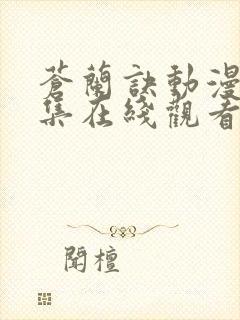 蒼蘭訣動漫
集在綫觀看
閱檀